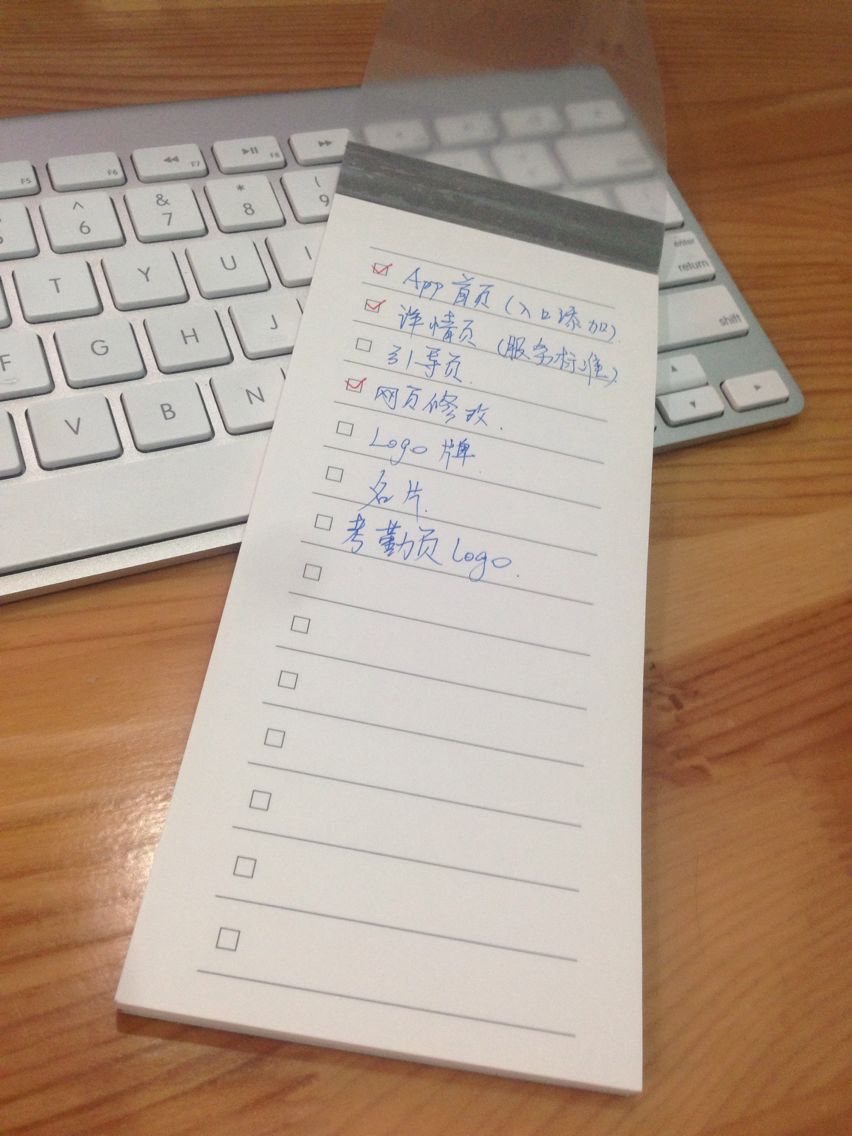 F5
F6
F7
F8
^
6
&
7
*
8
(
9
T
Y
U
I
F
G
H
J
V
B
N
enter
return
shift
App首页(入口添加).
详情页(服务标准).
引导页.
网页修改.
Logo牌.
名片.
考勤页Logo.